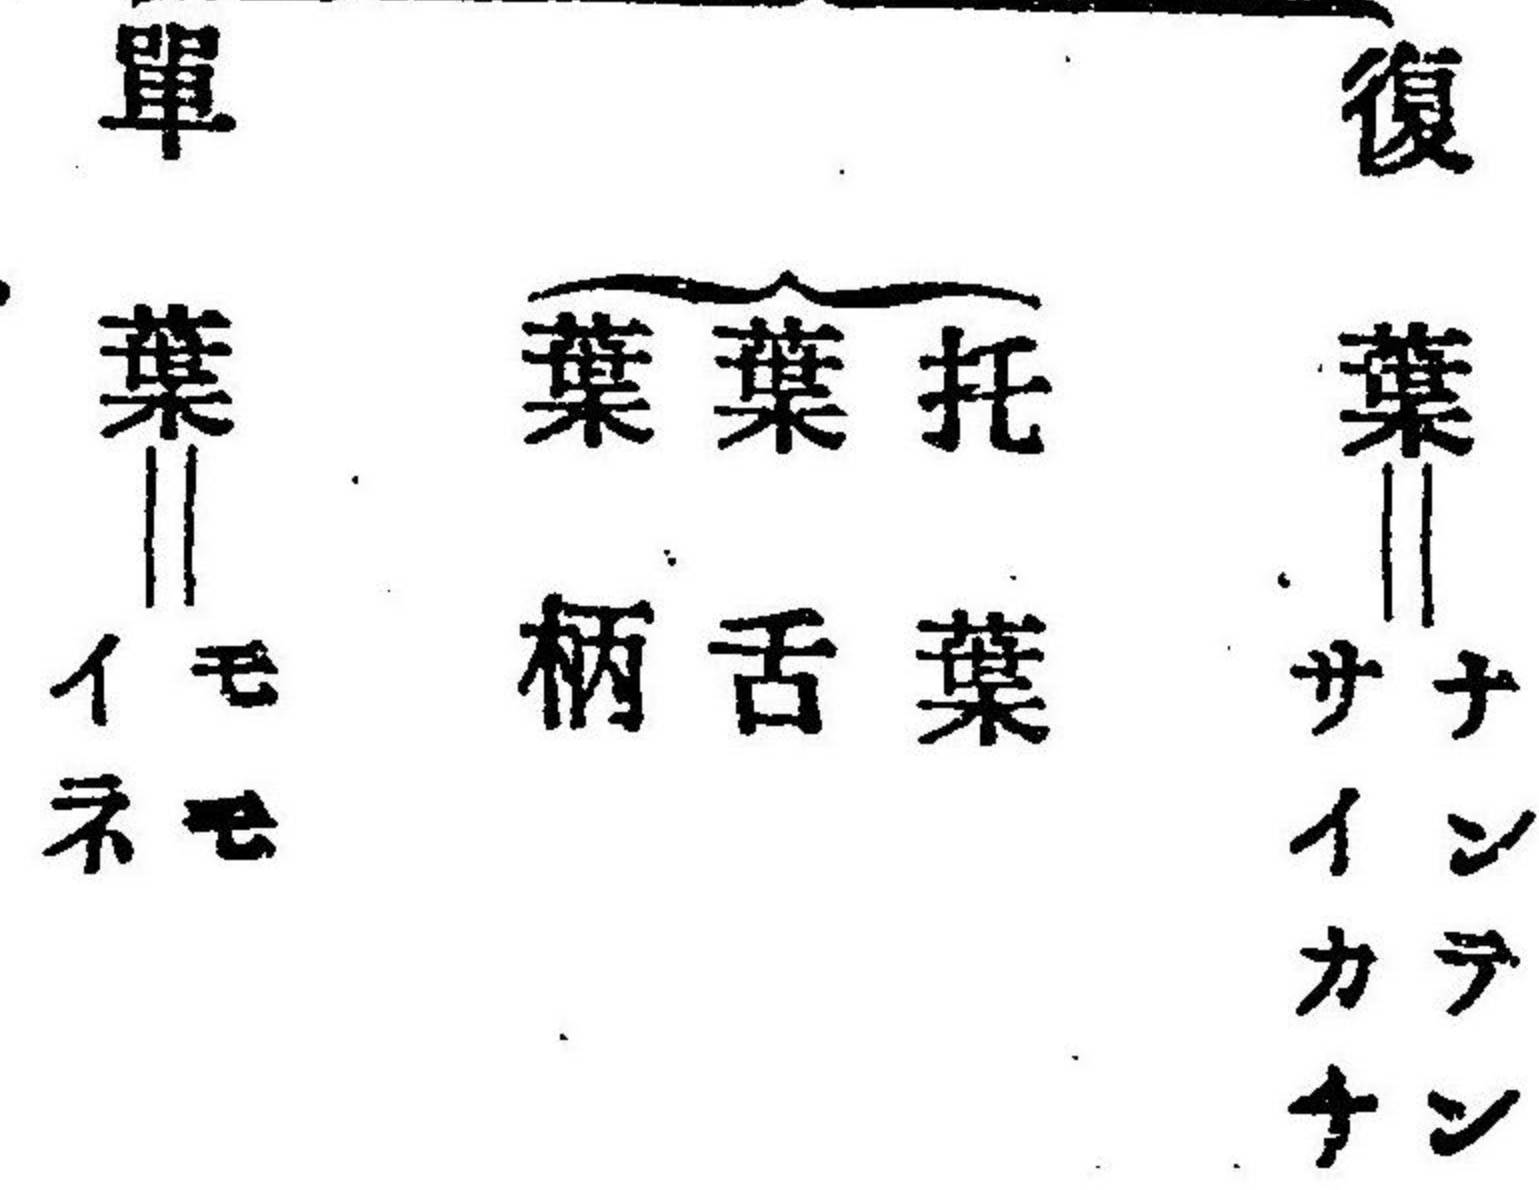 復葉
ナンテン
サイカチ
托葉
葉舌
葉柄
單葉
モモ
イネ